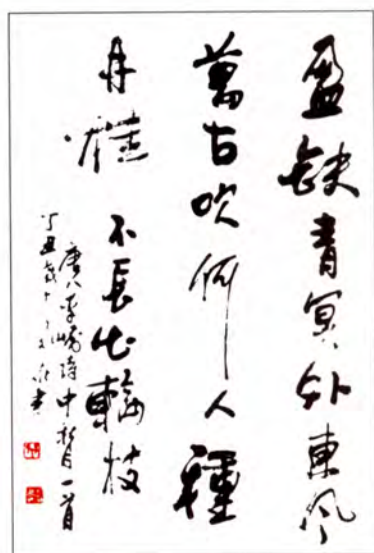 盈缺青冥外東風
萬古吹何人種
丹桂不長出輪枝
唐人李嶠詩中秋月一首
丁丑歲十書